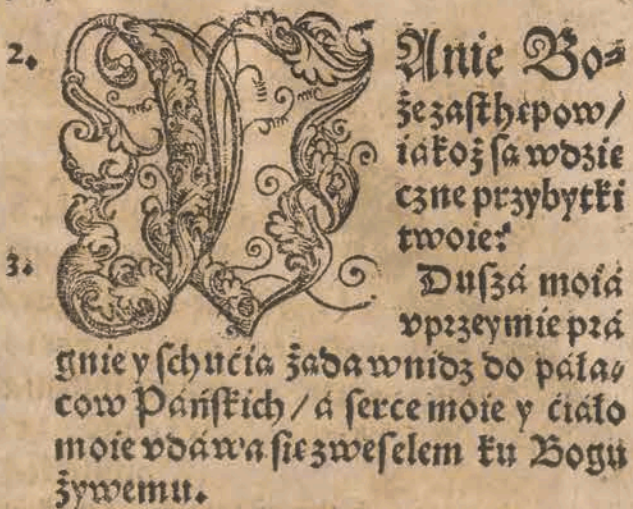 2. PAnie Bo⸗
że zaſthępow/
iákoż ſą wdzię
czne przybytki
twoie?
3. Duſzá moiá
vprzeymie prá
gnie y ſchućią żąda wnidz do páła⸗
cow Páńſkich / á ſerce moie y ćiáło
moie vdáwa ſię z weſelem ku Bogu
żywemu.